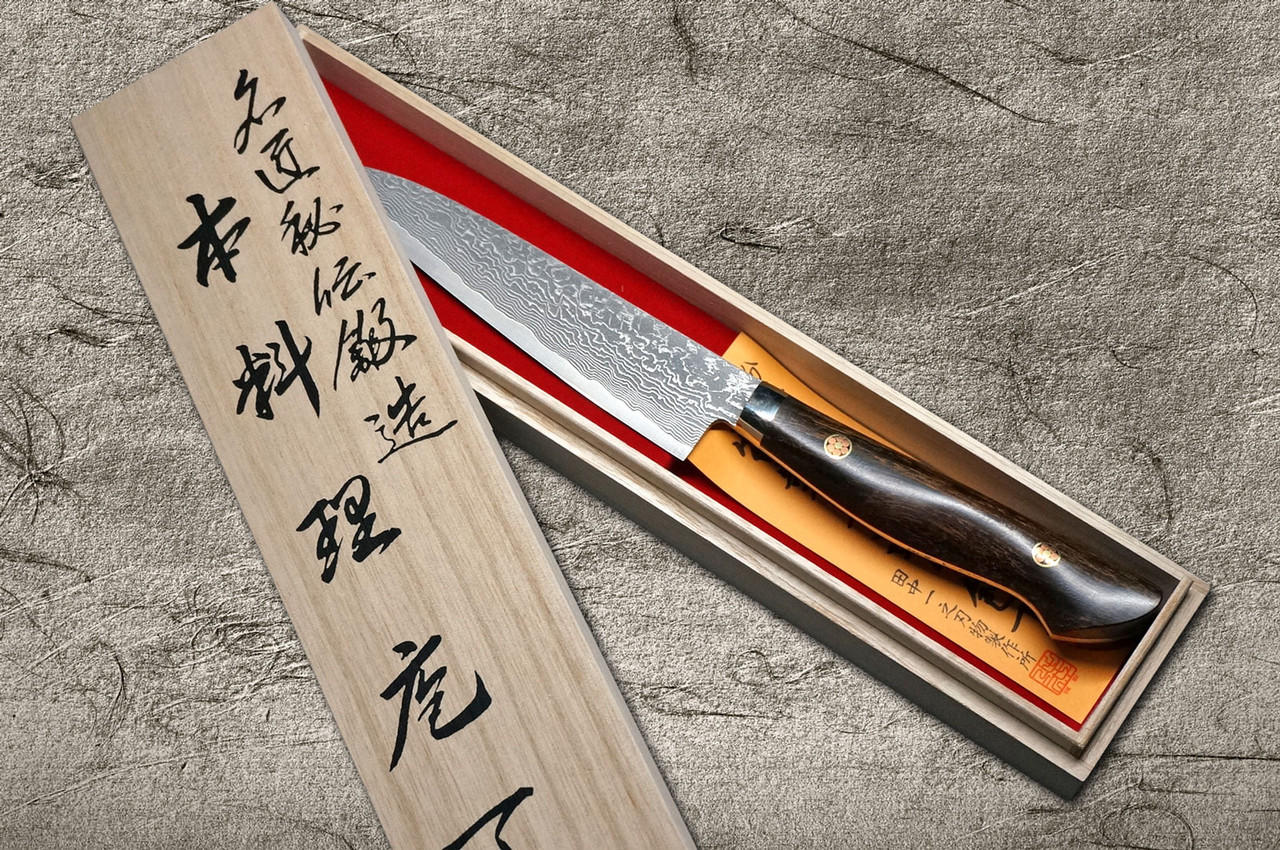 名匠秘伝鍛造
本料理庖丁
田中一之刃物製作所